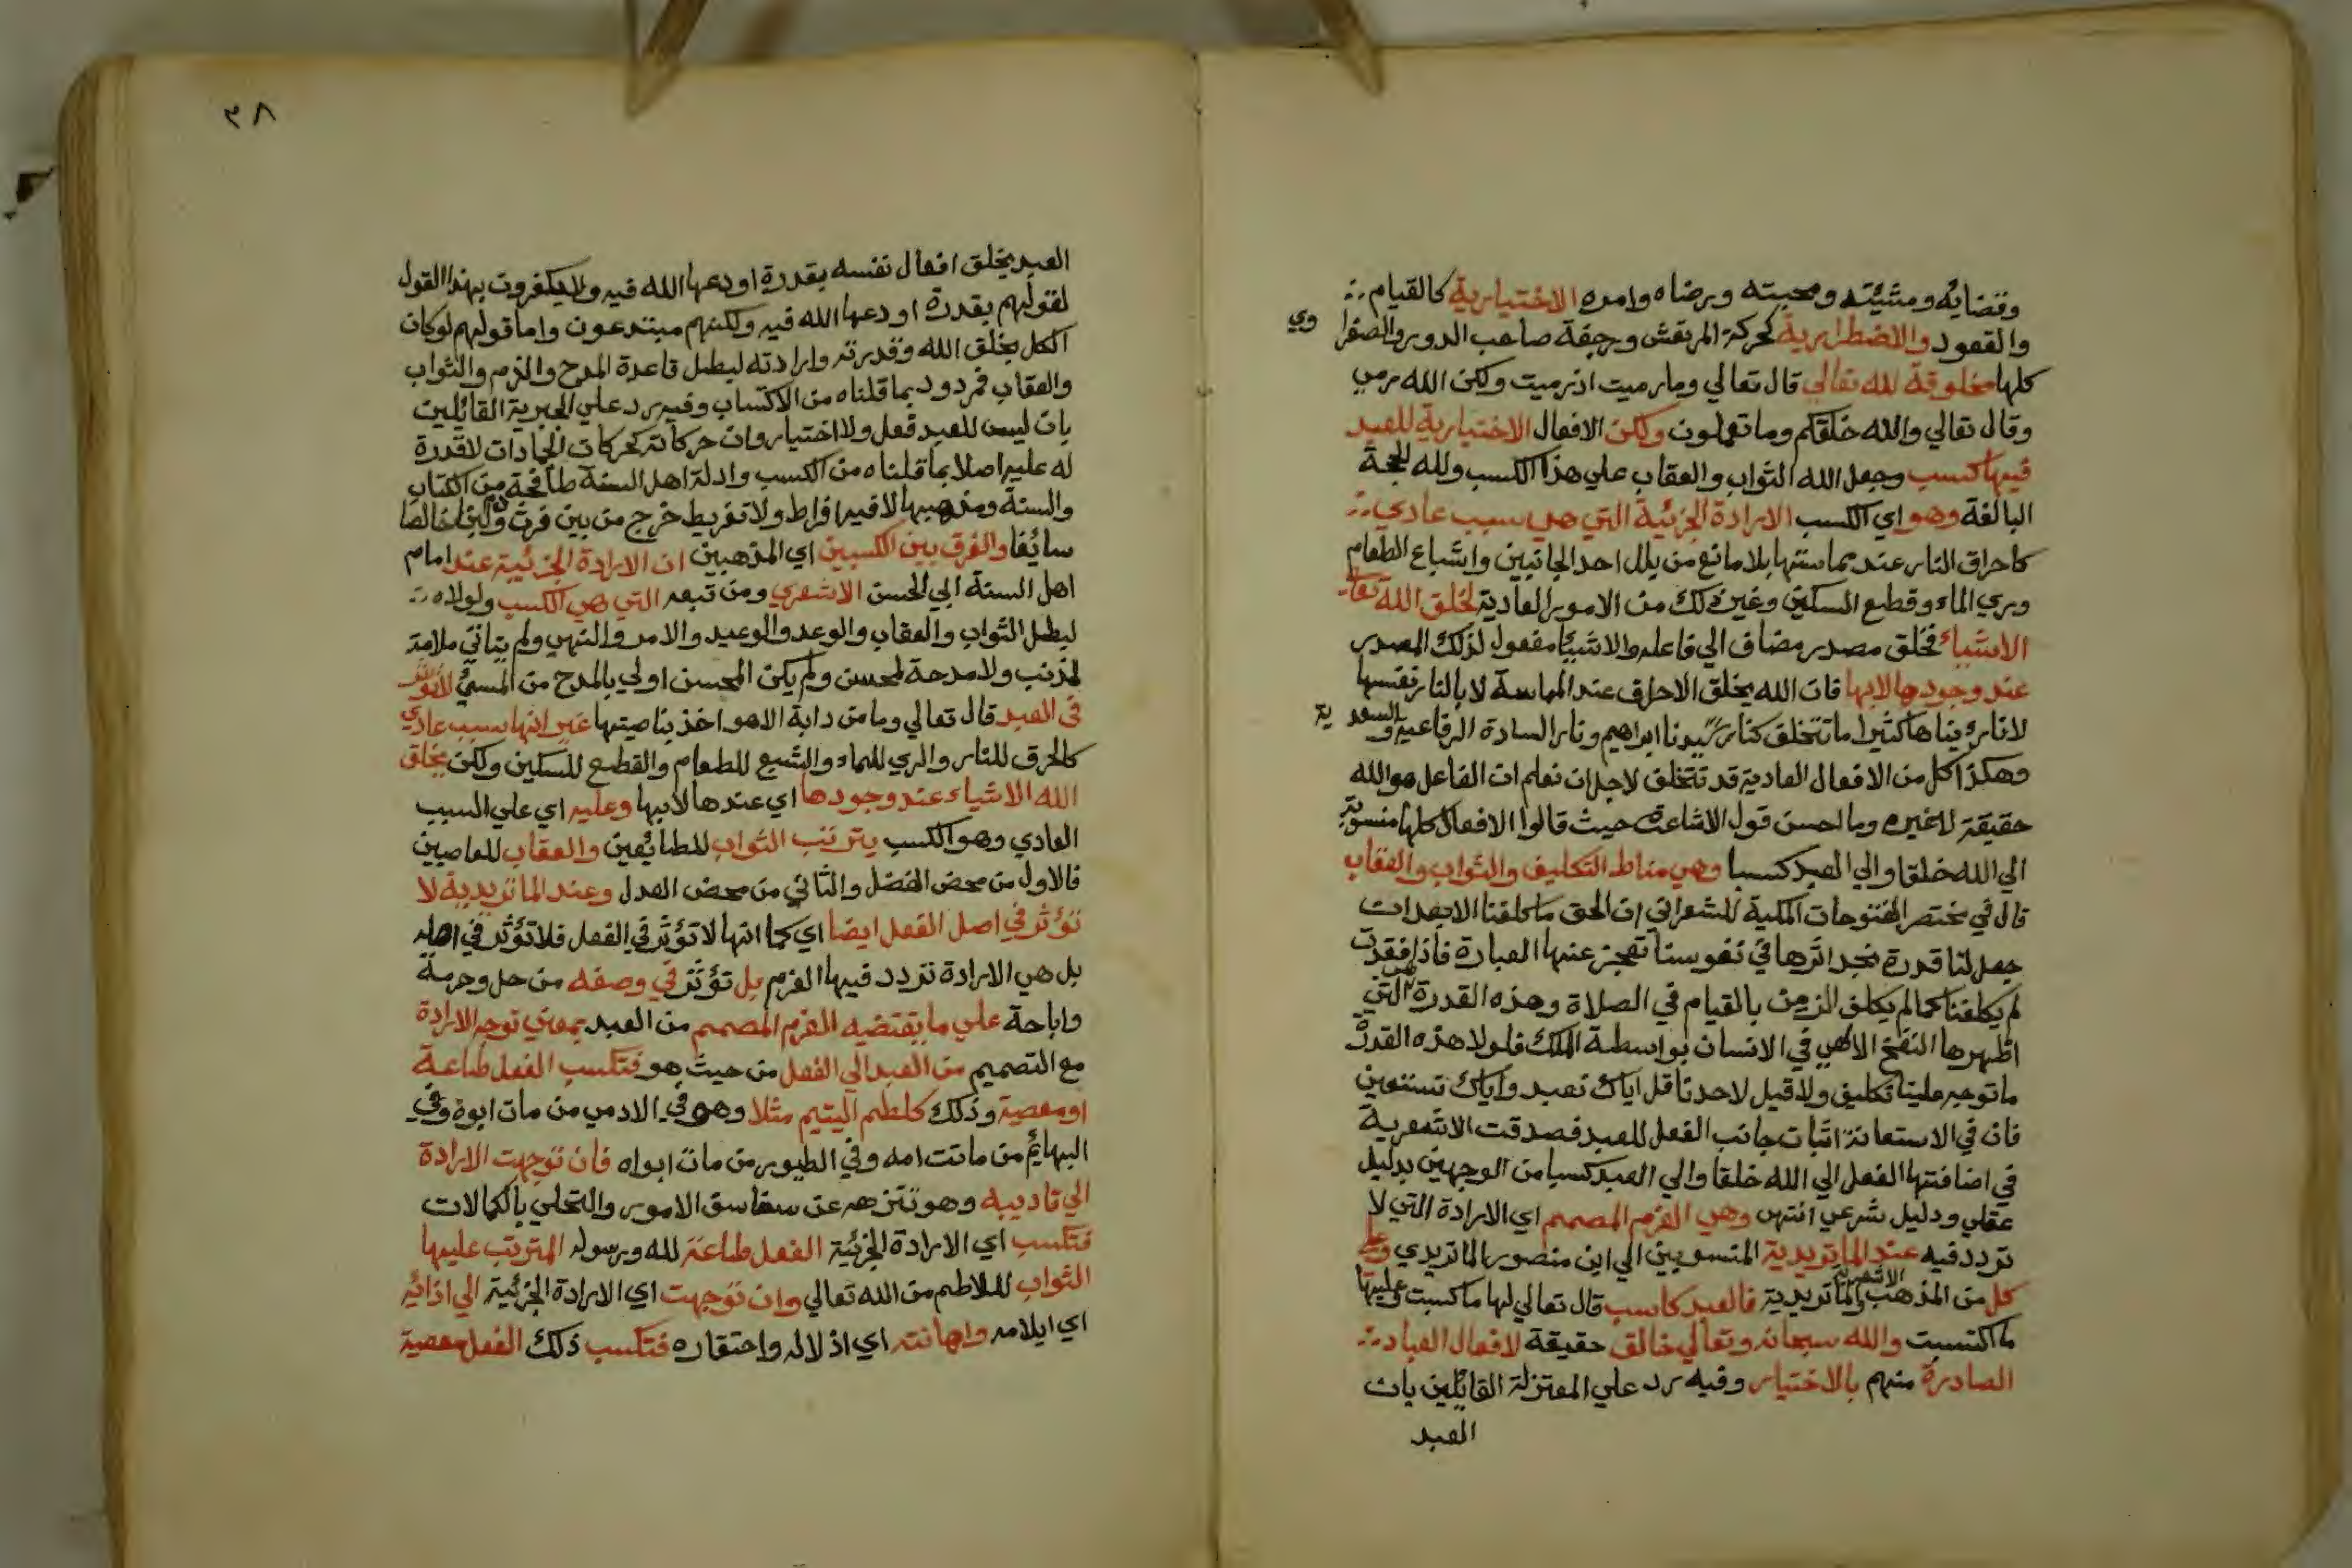 وقضائه ومشيئته ومحبته ورضاه وامره الاختيارية كالقيام
والقعود والاضطرارية كحركة المرتعش ورجفة صاحب الدور والصفرا وي
كلها مخلوقة لله تعالي قال تعالي وما رميت اذ رميت ولكن الله رمي
وقال تعالي والله خلقكم وما تعملون ولكن الافعال الاختيارية للعبد
فيها كسب وجعل الله الثواب والعقاب علي هذا الكسب ولله الحجة
البالغة وهو اي الكسب الارادة الجزئية التي هي سبب عادي
كاحراق النار عند مماستها بلا مانع من بلل احد الجانبين واشباع الطعام
وري الماء وقطع السكين وغير ذلك من الامور العادية لخلق الله تعالي
الاشياء فخلق مصدر مضاف الي فاعله والاشيئا مفعول لذلك المصدر
عند وجودها لا بها فان الله يخلق الاحراق عند المماسة لا بالنار نفسها
لانا رئيناها كثيرا ما تتخلف كنار سيدنا ابراهيم ونار السادة الرفاعية والسعد ية
وهكذا كل من الافعال العادية قد تتخلف لاجل ان نعلم ان الفاعل هو الله
حقيقة لا غيره وما احسن قول الاشاعرة حيث قالوا الافعال كلها منسوبة
الي الله خلقا والي العبد كسبا وهي مناط التكليف والثواب والعقاب
قال في مختصر الفتوحات المكية للشعراني ان الحق ما كلفنا الا بعد ان
جعل لنا قدرة نجد اثرها في نفوسنا تعجز عنها العبارة فاذا فقدت
لم يكلفنا كما لم يكلف الزمن بالقيام في الصلاة وهذه القدرة هي التي
اظهرها النفخ الالهي في الانسان بواسطة الملك فلولا هذه القدرة
ما توجه علينا تكليف ولا قيل لاحدنا قل اياك نعبد واياك نستعين
فان في الاستعانة اثبات جانب الفعل للعبد فصدقت الاشعرية
في اضافتها الفعل الي الله خلقا والي العبد كسبا من الوجهين بدليل
عقلي ودليل شرعي انتهي وهي العزم المصمم اي الارادة التي لا
تردد فيه عند الماتريدية المنسوبين الي ابن منصور الماتريدي وعلي
كل من المذهب الاشعرية والماتريدية فالعبد كاسب قال تعالي لها ما كسبت وعليها
ما اكتسبت والله سبحانه وتعالي خالق حقيقة لافعال العباد
الصادرة منهم بالاختيار وفيه رد علي المعتزلة القائلين بان
العبد
٣٨
العبد يخلق افعال نفسه بقدرة اودعها الله فيه ولا يكفرون بهذا القول
لقولهم بقدرة اودعها الله فيه ولكنهم مبتدعون واما قولهم لو كان
الكل بخلق الله وقدرته وارادته لبطل قاعدة المدح والذم والثواب
والعقاب فمردود بما قلناه من الاكتساب وفيه رد علي الجبرية القائلين
بان ليس للعبد فعل ولا اختيار وان حركاته كحركات الجمادات لا قدرة
له عليه اصلا بما قلناه من الكسب وادلة اهل السنة طافحة من الكتاب
والسنة ومذهبها لا فيه افراط ولا تفريط خرج من بين فرث ودم لبنا خالصا
سائغا والفرق بين الكسبين اي المذهبين ان الارادة الجزئية عند امام
اهل السنة ابي الحسن الاشعري ومن تبعه التي هي الكسب ولولاه
لبطل الثواب والعقاب والوعد والوعيد والامر والنهي ولم يتاتي ملامة
لمذنب ولا مدحة لمحسن ولم يكن المحسن اولي بالمدح من المسئ
في العبد قال تعالي وما من دابة الا هو اخذ بناصيتها غير انها سبب عادي
كالحرق للنار والري للماء والشبع للطعام والقطع للسكين ولكن يخلق
الله الاشياء عند وجودها اي عندها لا بها وعليه اي علي السبب
العادي وهو الكسب يترتب الثواب للطائعين والعقاب للعاصيين
فالاول من محض الفضل والثاني من محض العدل وعند الماتريدية لا
تؤثر في اصل الفعل ايضا اي كما انها لا تؤثر في الفعل فلا تؤثر في اصله
بل هي الارادة تردد فيها العزم بل تؤثر في وصفه من حل وحرمة
واباحة علي ما يقتضيه العزم المصمم من العبد بمعني توجه الارادة
مع التصميم من العبد الي الفعل من حيث هو فتكسب الفعل طاعة
او معصية وذلك كلطم اليتيم مثلا وهو في الادمي من مات ابوه وفي
البهائم من ماتت امه وفي الطيور من مات ابواه فان توجهت الارادة
الي تاديبه وهو تنزهه عن سفاسق الامور والتحلي بالكمالات
فتكسب اي الارادة الجزئية الفعل طاعة لله ورسوله المترتب عليها
الثواب لللاطم من الله تعالي وان توجهت اي الارادة الجزئية الي اذائه
اي ايلامه واهانته اي اذلاله واحتقاره فتكسب ذلك الفعل معصية